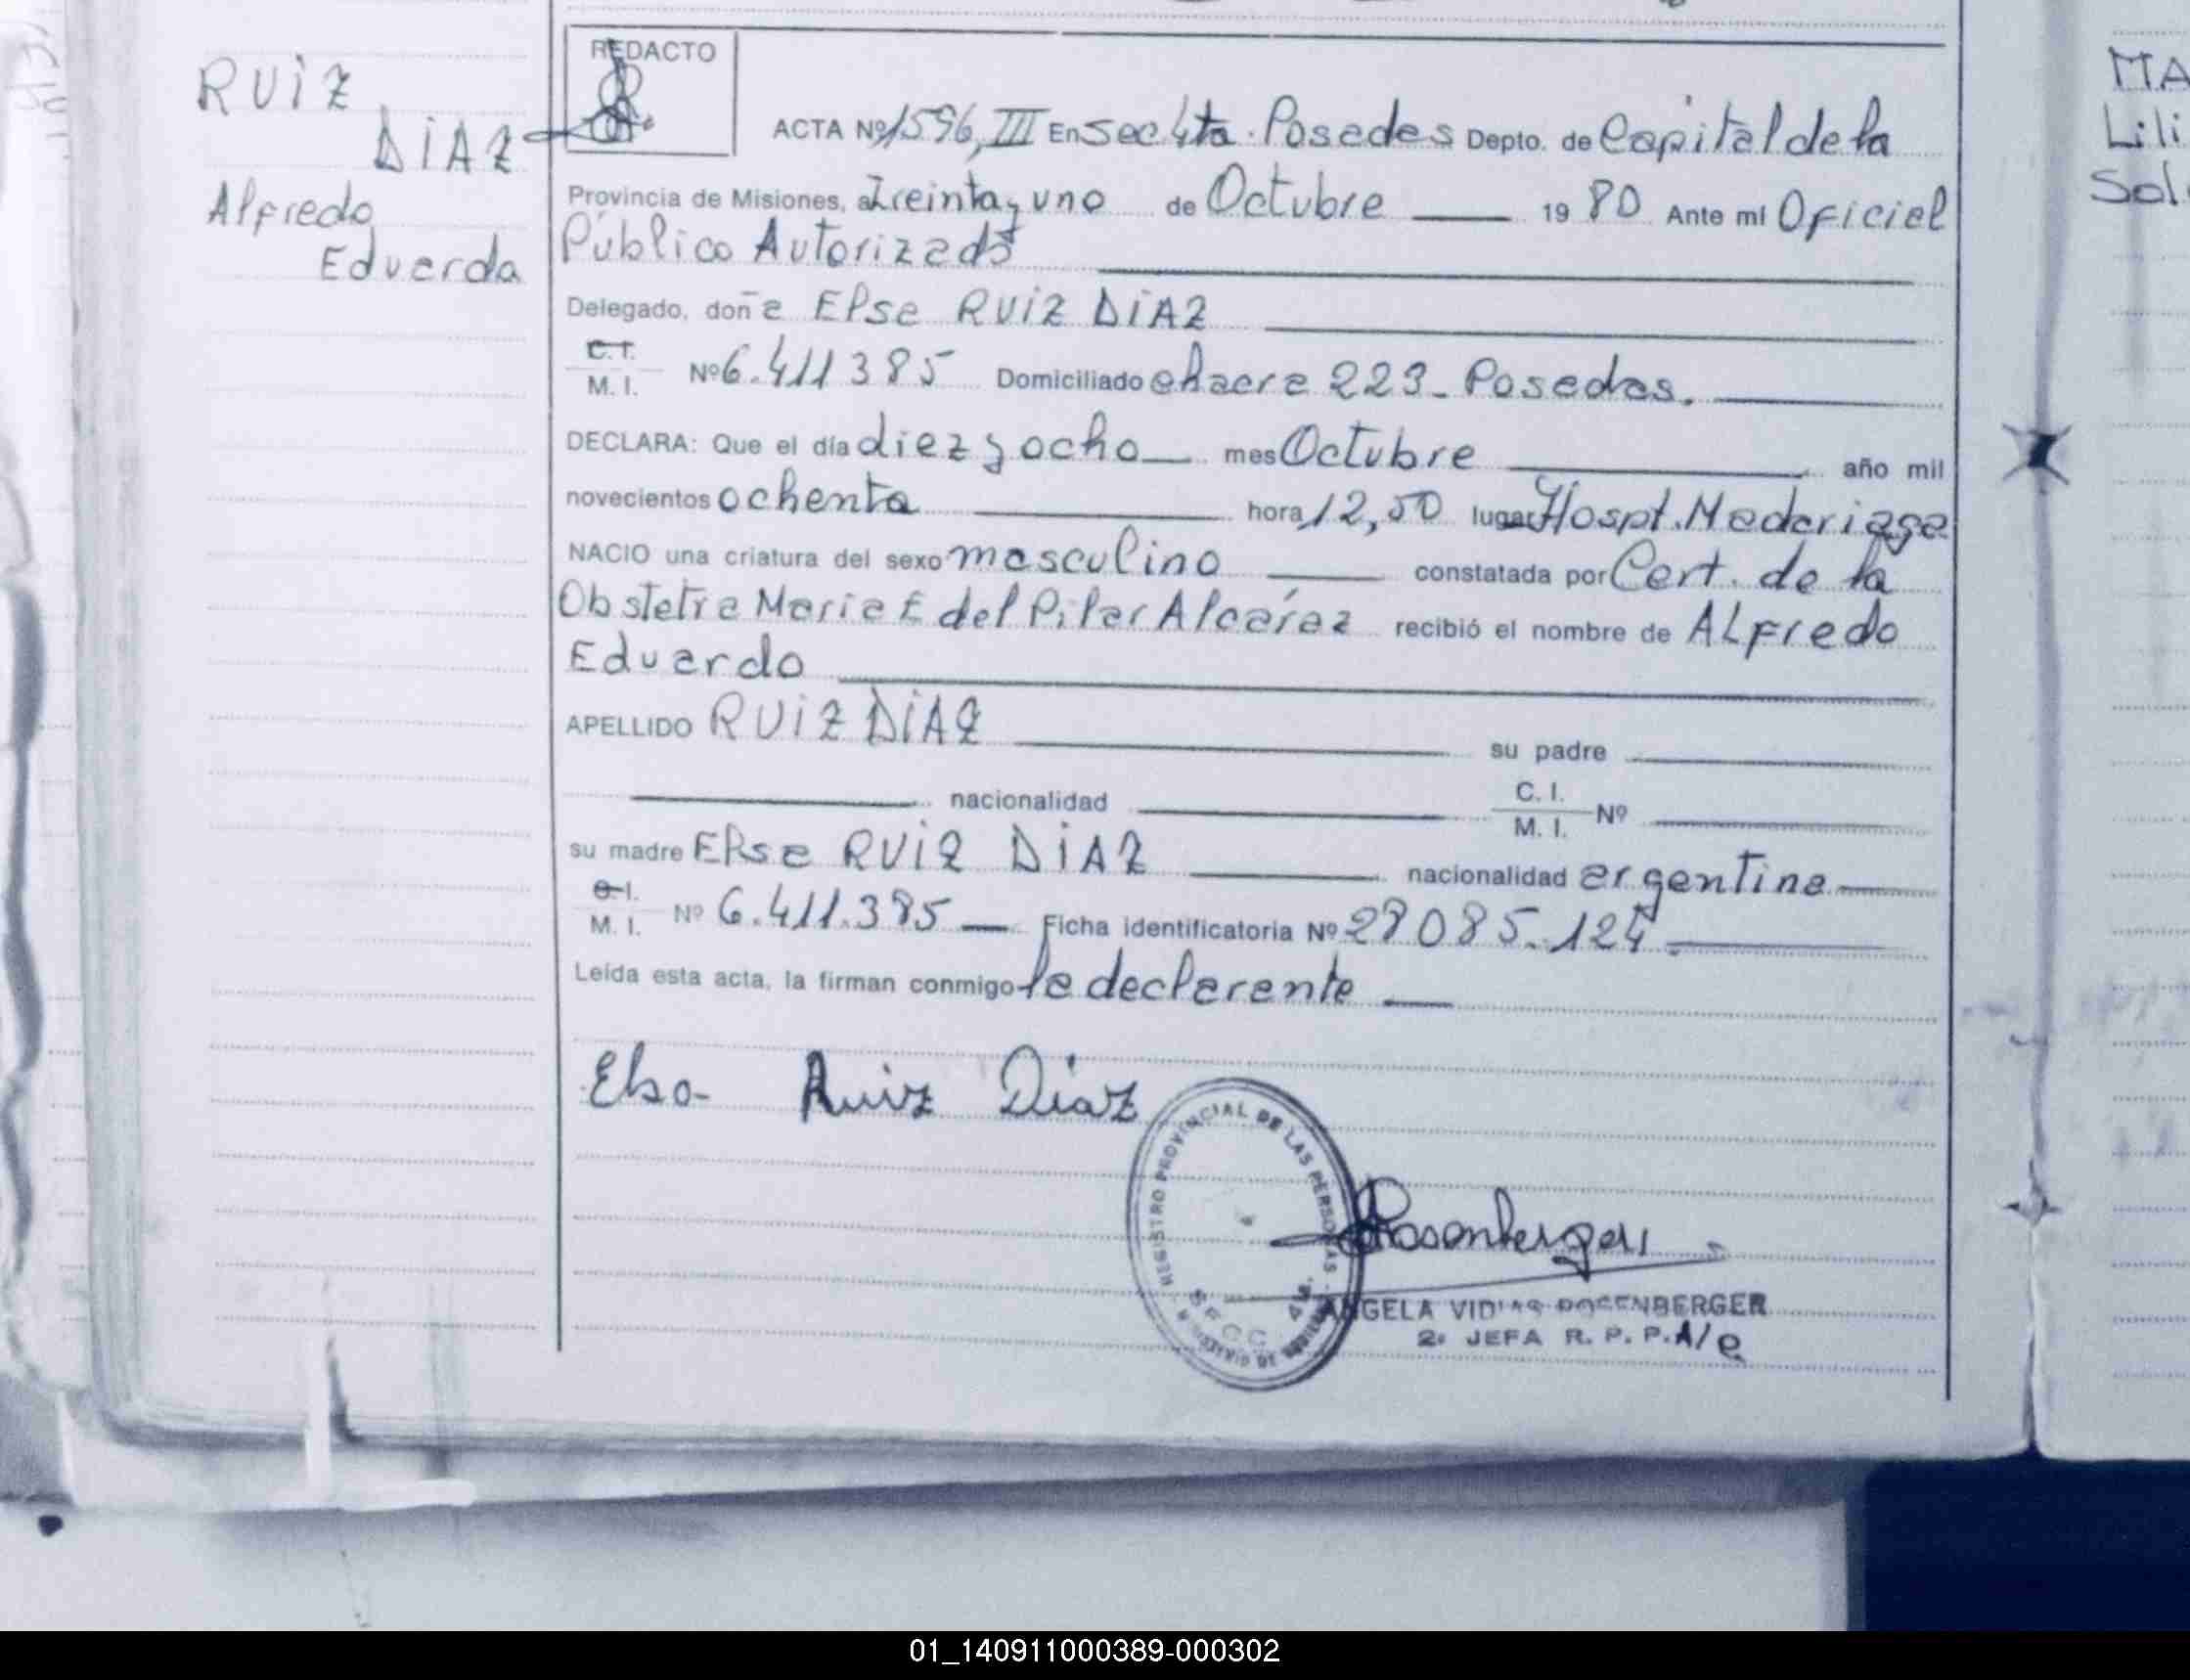 RUIZ
DIAZ
Alfredo
Eduardo
REDACTO
ACTA Nº 1596, III En Sec 4ta. Posadas Depto. de Capital de la
Provincia de Misiones, a treinta y uno de Octubre 19 80 Ante mí Oficial
Público Autorizado
Delegado, doña Elsa RUIZ DIAZ
C. I.
M. I. Nº 6.411385 Domiciliado chacra 223- Posadas.
DECLARA: Que el día diez y ocho mes Octubre año mil
novecientos ochenta hora 12,50 lugar Hospt. Madariaga
NACIO una criatura del sexo masculino constatada por Cert. de la
Obstetra Maria E del Pilar Alcaráz recibió el nombre de ALfredo
Eduardo
APELLIDO RUIZ DIAZ su padre
nacionalidad C. I.
M. I. Nº
su madre Elsa RUIZ DIAZ nacionalidad argentina
C. I.
M. I. Nº 6.411.385 Ficha identificatoria Nº 28085.124
Leída esta acta, la firman conmigo la declarante
Elsa Ruiz Díaz
REGISTRO PROVINCIAL DE LAS PERSONAS
Rosenberger
ANGELA VIDIAS ROSENBERGER
2º JEFA R. P. P. A/c
MA
Lili
Sol
01_140911000389-000302